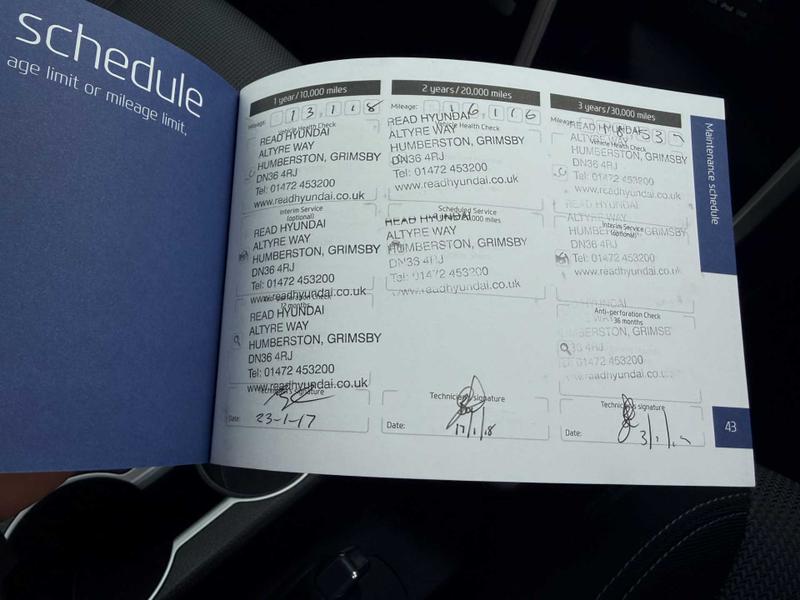 schedule
age limit or mileage limit.
1 year/10,000 miles
Mileage:
Vehicle Health Check
READ HYUNDAI
ALTYRE WAY
HUMBERSTON, GRIMSBY
DN36 4RJ
Tel: 01472 453200
www.readhyundai.co.uk
Interim Service
(optional)
READ HYUNDAI
ALTYRE WAY
HUMBERSTON, GRIMSBY
DN36 4RJ
Tel: 01472 453200
www.readhyundai.co.uk
12 months
READ HYUNDAI
ALTYRE WAY
HUMBERSTON, GRIMSBY
DN36 4RJ
Tel: 01472 453200
www.readhyundai.co.uk
Technician's signature
Date: 23-1-17
2 years/20,000 miles
Mileage: 16116
READ HYUNDAI
Vehicle Health Check
ALTYRE WAY
HUMBERSTON, GRIMSBY
DN36 4RJ
Tel: 01472 453200
www.readhyundai.co.uk
Scheduled Service
READ HYUNDAI
ALTYRE WAY
HUMBERSTON, GRIMSBY
DN36 4RJ
Tel: 01472 453200
www.readhyundai.co.uk
Technician's signature
Date: 17/1/18
3 years/30,000 miles
Mileage:
READ HYUNDAI
ALTYRE WAY
Vehicle Health Check
HUMBERSTON, GRIMSBY
DN36 4RJ
Tel: 01472 453200
www.readhyundai.co.uk
READ HYUNDAI
ALTYRE WAY
Interim Service
(optional)
HUMBERSTON, GRIMSBY
DN36 4RJ
Tel: 01472 453200
www.readhyundai.co.uk
Anti-perforation Check
36 months
HUMBERSTON, GRIMSB
01472 453200
www.readhyundai.co.uk
Technician's signature
Date:
Maintenance schedule
43